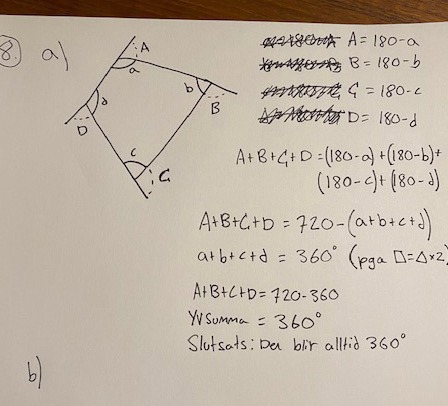 8. a)
A = 180-a
B = 180-b
C = 180-c
D = 180-d
A
a
b
B
d
D
c
C
A+B+C+D = (180-a)+(180-b)+
(180-c)+(180-d)
A+B+C+D = 720-(a+b+c+d)
a+b+c+d = 360° (pga □=△×2)
A+B+C+D = 720-360
YVsumma = 360°
Slutsats: Den blir alltid 360°
b)